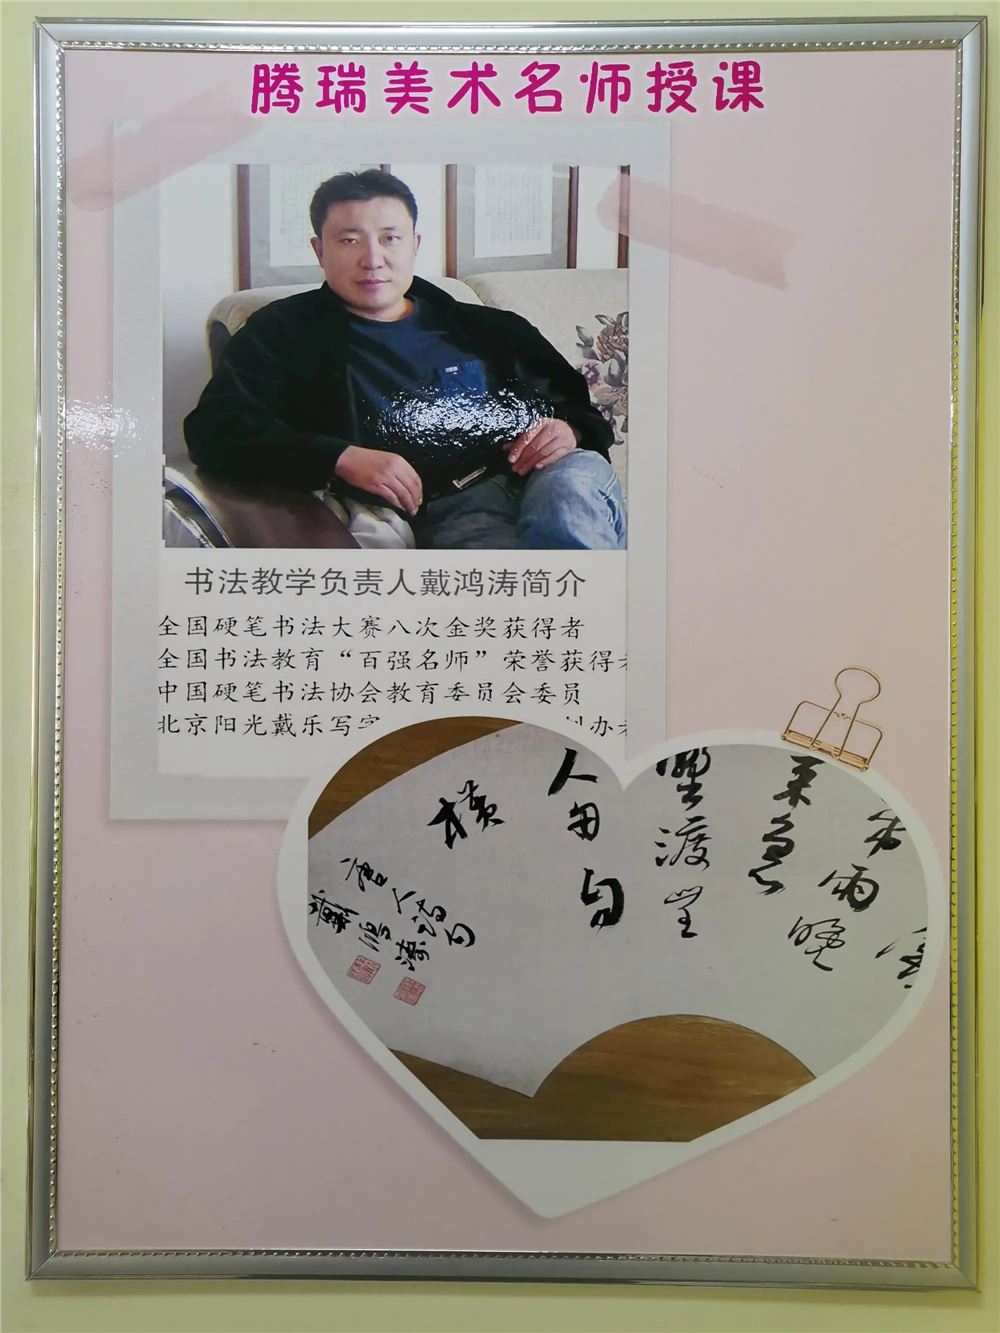 腾瑞美术名师授课
书法教学负责人戴鸿涛简介
全国硬笔书法大赛八次金奖获得者
全国书法教育“百强名师”荣誉获得
中国硬笔书法协会教育委员会委员
北京阳光戴乐写字 办
雨晚
来急
野渡
人舟自
横
唐人诗句
戴鸿涛